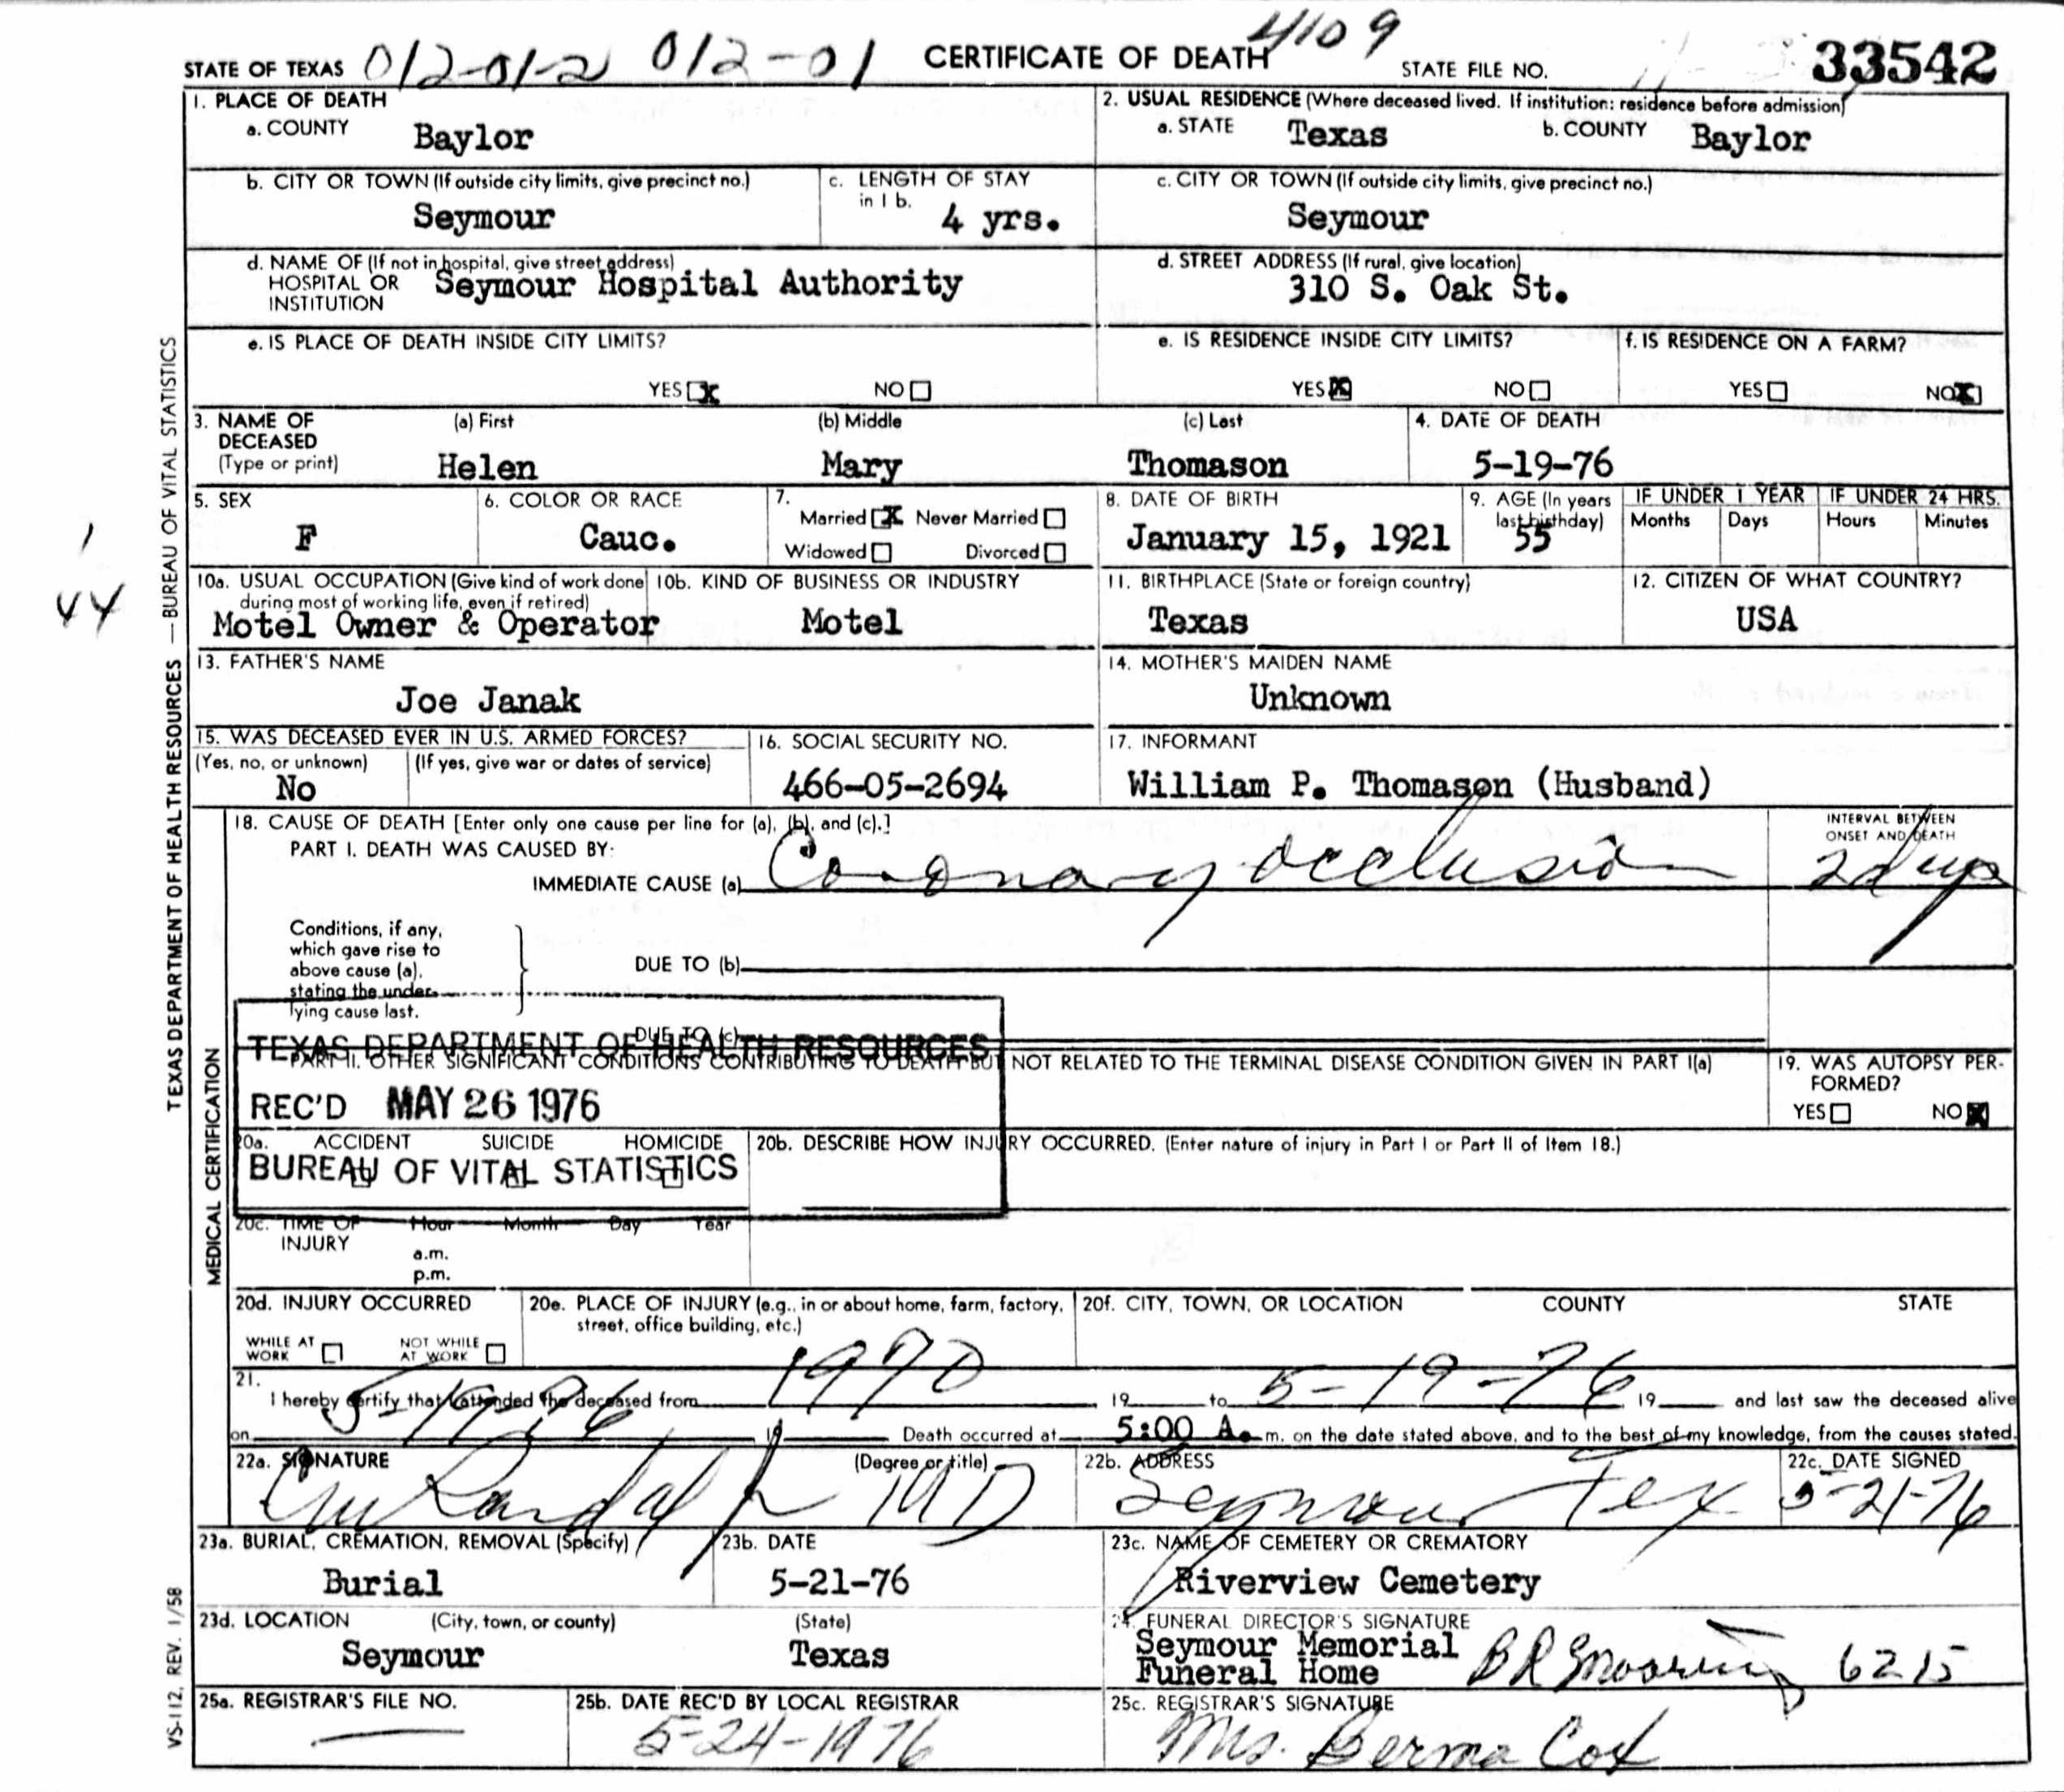 STATE OF TEXAS 012-01-2 012-01 CERTIFICATE OF DEATH 4109 STATE FILE NO. 33542
1. PLACE OF DEATH
a. COUNTY Baylor
2. USUAL RESIDENCE (Where deceased lived. If institution: residence before admission)
a. STATE Texas b. COUNTY Baylor
b. CITY OR TOWN (If outside city limits, give precinct no.)
Seymour
c. LENGTH OF STAY
in 1 b.
4 yrs.
c. CITY OR TOWN (If outside city limits, give precinct no.)
Seymour
d. NAME OF (If not in hospital, give street address)
HOSPITAL OR
INSTITUTION
Seymour Hospital Authority
d. STREET ADDRESS (If rural, give location)
310 S. Oak St.
e. IS PLACE OF DEATH INSIDE CITY LIMITS?
YES X NO
e. IS RESIDENCE INSIDE CITY LIMITS?
YES X NO
f. IS RESIDENCE ON A FARM?
YES NO X
3. NAME OF
DECEASED
(Type or print)
(a) First (b) Middle (c) Last
Helen Mary Thomason
4. DATE OF DEATH
5-19-76
5. SEX
F
6. COLOR OR RACE
Cauc.
7.
Married X Never Married
Widowed Divorced
8. DATE OF BIRTH
January 15, 1921
9. AGE (In years
last birthday)
55
IF UNDER 1 YEAR IF UNDER 24 HRS.
Months Days Hours Minutes
1
44
10a. USUAL OCCUPATION (Give kind of work done
during most of working life, even if retired)
Motel Owner & Operator
10b. KIND OF BUSINESS OR INDUSTRY
Motel
11. BIRTHPLACE (State or foreign country)
Texas
12. CITIZEN OF WHAT COUNTRY?
USA
13. FATHER'S NAME
Joe Janak
14. MOTHER'S MAIDEN NAME
Unknown
15. WAS DECEASED EVER IN U.S. ARMED FORCES?
(Yes, no, or unknown) (If yes, give war or dates of service)
No
16. SOCIAL SECURITY NO.
466-05-2694
17. INFORMANT
William P. Thomason (Husband)
18. CAUSE OF DEATH [Enter only one cause per line for (a), (b), and (c).]
PART I. DEATH WAS CAUSED BY:
IMMEDIATE CAUSE (a) Coronary occlusion
INTERVAL BETWEEN
ONSET AND DEATH
2 days
Conditions, if any,
which gave rise to
above cause (a),
stating the under-
lying cause last.
DUE TO (b)
DUE TO (c)
PART II. OTHER SIGNIFICANT CONDITIONS CONTRIBUTING TO DEATH BUT NOT RELATED TO THE TERMINAL DISEASE CONDITION GIVEN IN PART I(a)
19. WAS AUTOPSY PER-
FORMED?
YES NO X
TEXAS DEPARTMENT OF HEALTH RESOURCES
REC'D MAY 26 1976
BUREAU OF VITAL STATISTICS
20a. ACCIDENT SUICIDE HOMICIDE
20b. DESCRIBE HOW INJURY OCCURRED. (Enter nature of injury in Part I or Part II of Item 18.)
20c. TIME OF
INJURY
Hour Month Day Year
a.m.
p.m.
20d. INJURY OCCURRED
WHILE AT
WORK
NOT WHILE
AT WORK
20e. PLACE OF INJURY (e.g., in or about home, farm, factory,
street, office building, etc.)
20f. CITY, TOWN, OR LOCATION COUNTY STATE
21.
I hereby certify that I attended the deceased from 1970 19 to 5-19-76 19 and last saw the deceased alive
on 5-19-76 19 Death occurred at 5:00 A. m. on the date stated above, and to the best of my knowledge, from the causes stated.
22a. SIGNATURE (Degree or title)
Randal Jr MD
22b. ADDRESS
Seymour Tex
22c. DATE SIGNED
5-21-76
23a. BURIAL, CREMATION, REMOVAL (Specify)
Burial
23b. DATE
5-21-76
23c. NAME OF CEMETERY OR CREMATORY
Riverview Cemetery
23d. LOCATION (City, town, or county) (State)
Seymour Texas
24. FUNERAL DIRECTOR'S SIGNATURE
Seymour Memorial
Funeral Home
6215
25a. REGISTRAR'S FILE NO.
25b. DATE REC'D BY LOCAL REGISTRAR
5-24-1976
25c. REGISTRAR'S SIGNATURE
Mrs. Berma Cox
TEXAS DEPARTMENT OF HEALTH RESOURCES — BUREAU OF VITAL STATISTICS
MEDICAL CERTIFICATION
VS-112, REV. 1/58